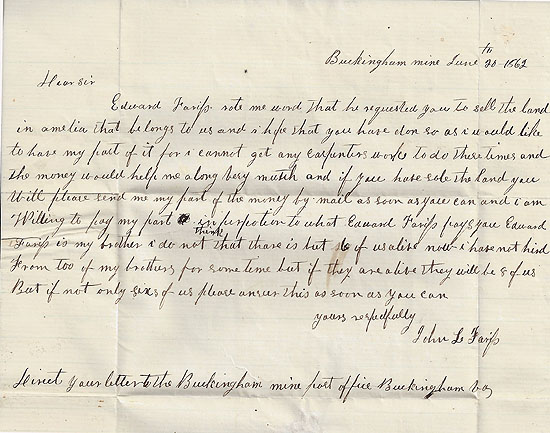 Buckingham mine June 20th 1862
Dear sir
Edward Fariss rote me word that he requested you to sell the land
in amelia that belongs to us and i hope that you have don so as i would like
to have my part of it for i cannot get any carpenters worke to do these times and
the money would help me along very mutch and if you have sole the land you
Will please send me my part of the money by mail as soon as you can and i am
Willing to pay my part in purpotion to what Edward Fariss pays you Edward
Fariss is my brother i do not think that there is but 6 of us alive now i have not hird
From too of my brothers for some time but if they are alive they will be 8 of us
But if not only sixs of us please ansur this as soon as you can
yours respectfully
John L Fariss
Direct your letter to the Buckingham mine post office Buckingham va